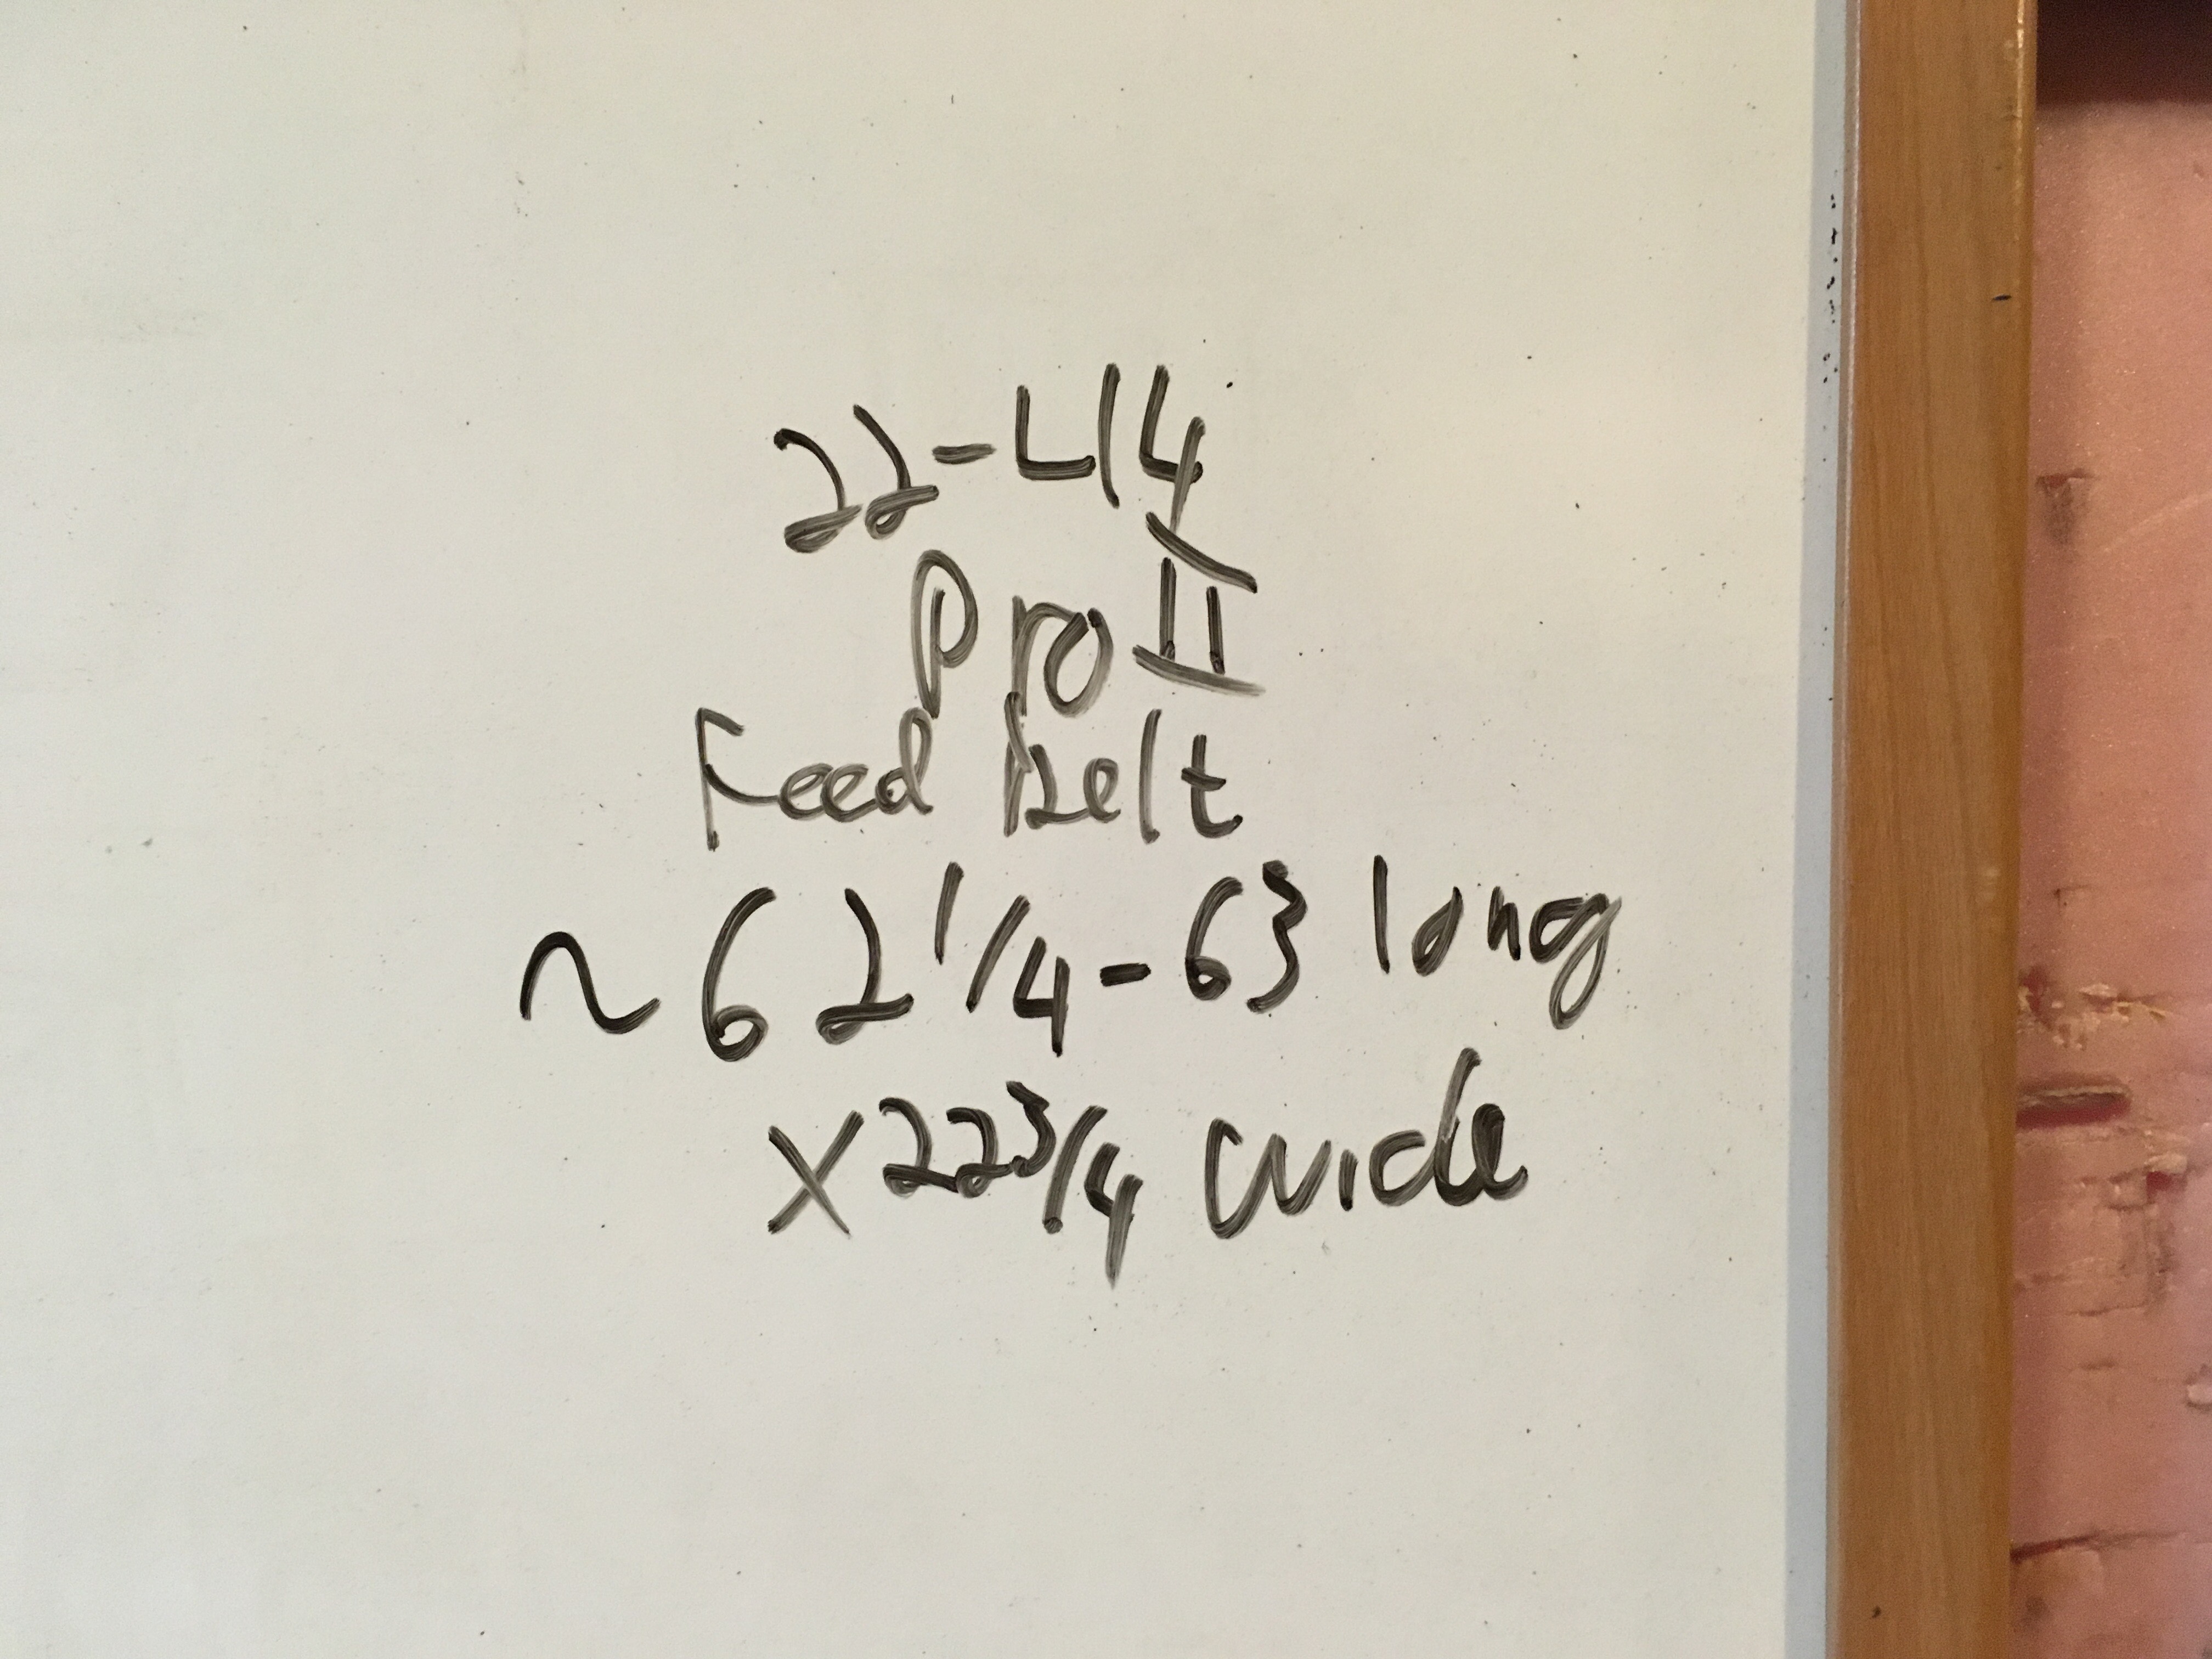 22-44
Pro II
Feed belt
~62 1/4-63 long
x22 3/4 wide